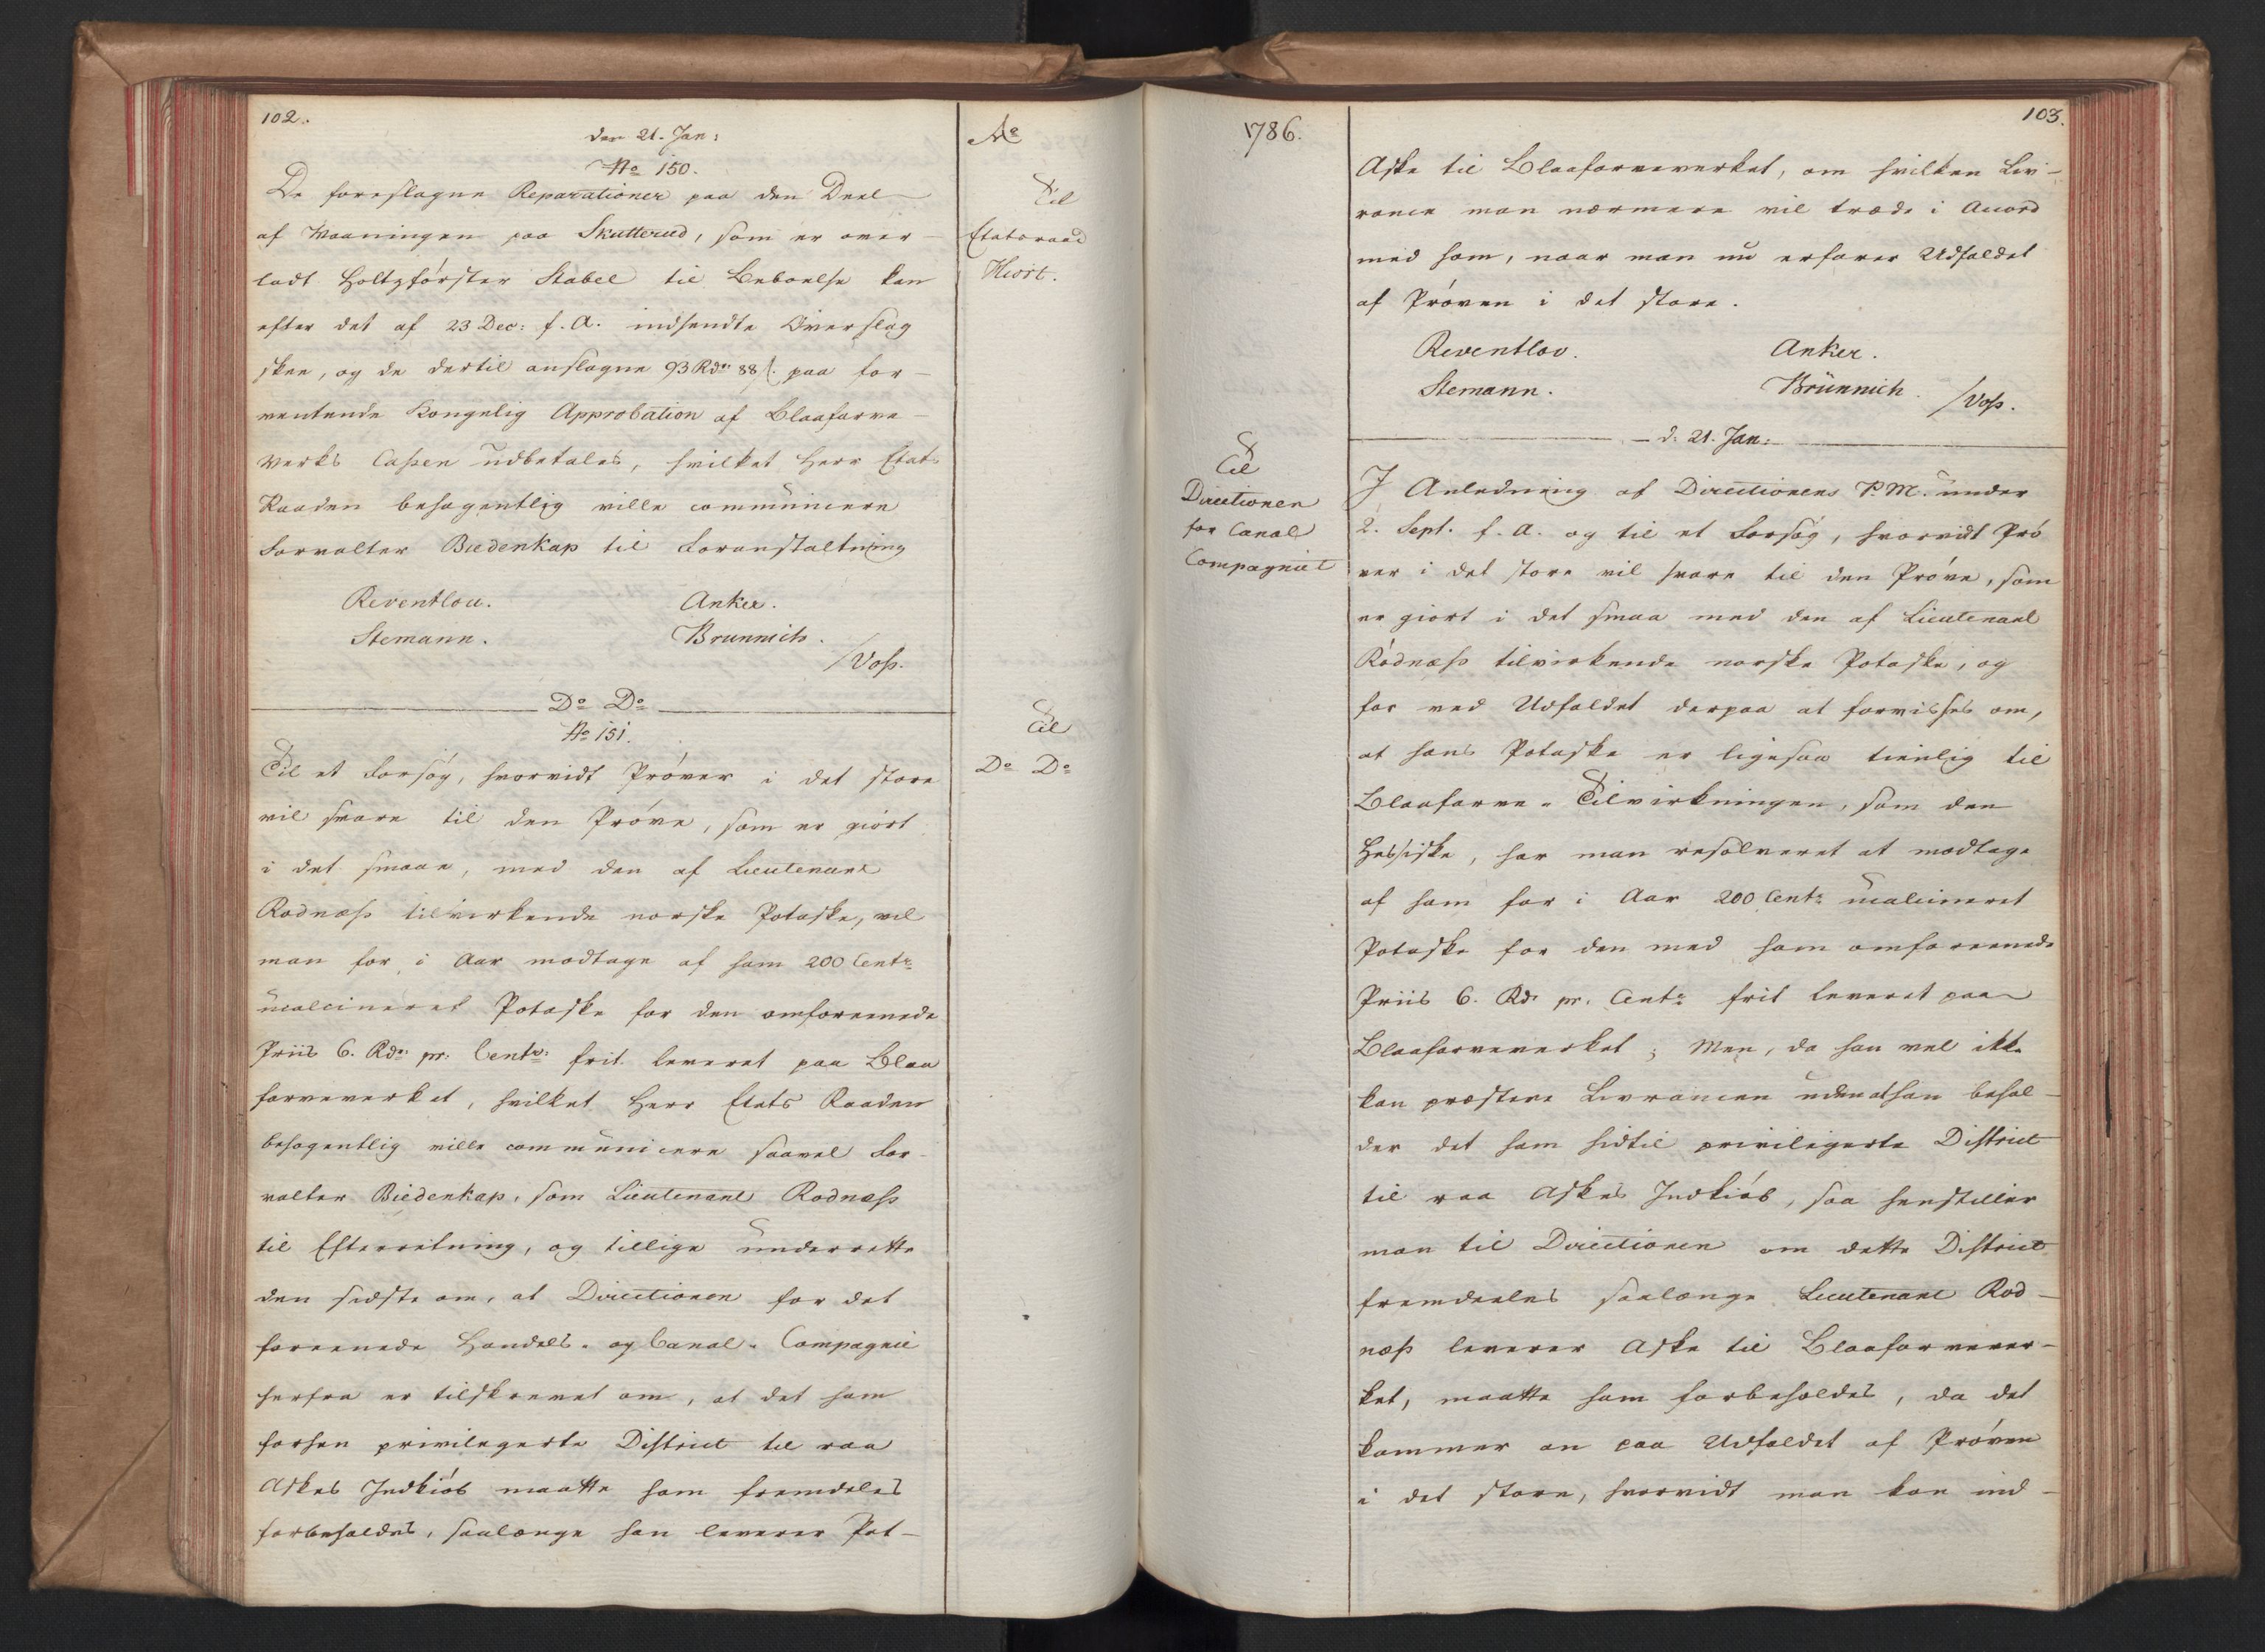 102.
den 21. Jan:
No 150.
De foreslagne Reparationer paa den Deel
af Waaningen paa Skutterud, som er over-
ladt Holtzförster Stabel til Beboelse kan
efter det af 23 Dec: f. A. indsendte Overslag
skee, og de dertil anslagne 93 Rdr 88 s. paa for-
ventende Kongelig Approbation af Blaafarve-
Werks Cassen udbetales, hvilket Herr Etats
Raaden behagentlig ville communicere
Forvalter Biedenkap til Foranstaltning
Reventlou. Anker.
Stemann. Brunnich.
/Voss.
Do Do
No 151.
Til et Forsøg, hvorvidt Prøver i det store
vil svare til den Prøve, som er giort
i det smaae, med den af Lieutenant
Rødnæss tilvirkende norske Potaske, vil
man for i Aar modtage af ham 200 Centr
ucalcineret Potaske for den omforeenede
Priis 6. Rdr pr: Centr: frit leveret paa Blaa
farveverket, hvilket Herr Etats Raaden
behagentlig ville communicere saavel For-
valter Biedenkap, som Lieutenant Rodnæss
til Efterretning, og tillige underrette
den sidste om, at Directionen for det
foreenede Handels- og Canal- Compagnie
herfra er tilskrevet om, at det ham
forhen privilegerte District til raa
Askes Indkiøb maatte ham fremdeles
forbeholdes, saalænge han leverer Pot-
Ao
Til
Etatsraad
Hiort.
Til
Do Do
1786.
Til
Directionen
for Canal
Compagniet
103.
Aske til Blaafarveverket, om hvilken Lev-
rance man nærmere vil træde i Accord
med ham, naar man nu erfarer Udfaldet
af Prøven i det store.
Reventlov. Anker.
Stemann. Brünnich. /Voss.
d. 21. Jan:
I Anledning af Directionens P. M. under
2. Sept. f. A. og til et Forsøg, hvorvidt Prø
ver i det store vil svare til den Prøve, som
er giort i det smaa med den af Lieutenant
Rødnæss tilvirkende norske Potaske, og
for ved Udfaldet derpaa at forvisses om,
at hans Potaske er ligesaa tienlig til
Blaafarve-Tilvirkningen, som den
Hessiske, har man resolveret at modtage
af ham for i Aar 200 Centr ucalcineret
Potaske for den med ham omforeenede
Priis 6. Rdr pr. Centr frit leveret paa
Blaafarveverket; Men, da han vel ikke
kan præstere Levrancen uden at han behol-
der det ham hidtil privilegerte District
til raa Askes Indkiøb, saa henstiller
man til Directionen om dette District
fremdeeles saalænge Lieutenant Rod-
næss leverer Aske til Blaafarvever-
ket, maatte ham forbeholdes, da det
kommer an paa Udfaldet af Prøven
i det store, hvorvidt man kan ind-